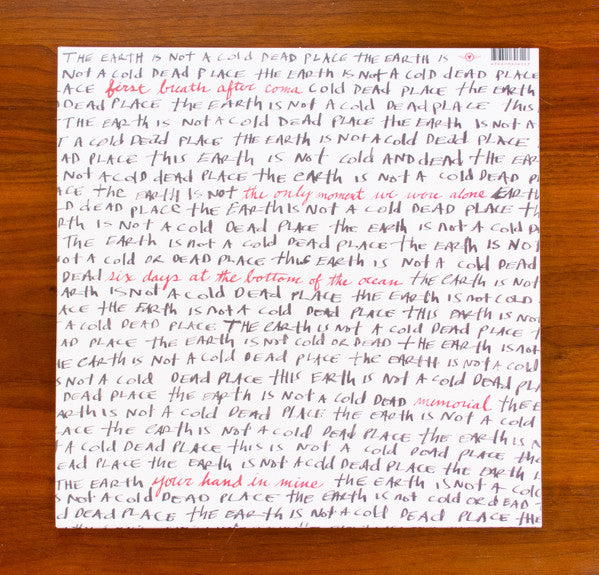 THE EARTH IS NOT A Cold DEAD PLACE THE EARTH IS
NOT A Cold DEAD PLACE THE EARTH IS NOT A COLD DEAD PLACE
ACE first breath after coma COLD DEAD PLACE THE EARTH
DEAD PLACE THE EARTH IS NOT A COLD DEAD PLACE THIS
THE EARTH IS NOT A COLD DEAD PLACE THE EARTH IS NOT A
T A COLD DEAD PLACE THE EARTH IS NOT A COLD DEAD PLACE
AD PLACE THIS EARTH IS NOT COLD AND DEAD THE EAR
NOT A COLD DEAD PLACE THE EARTH IS NOT A COLD DEAD PL
ACE THE EARTH IS NOT the only moment we were alone EARTH
D DEAD PLACE THE EARTH IS NOT A COLD DEAD PLACE THE EAR
RTH IS NOT A COLD DEAD PLACE THE EARTH IS NOT A COLD D
THE EARTH IS NOT A COLD DEAD PLACE THE EARTH IS NO
OT A COLD OR DEAD PLACE THIS EARTH IS NOT A COLD DEAD
DEAD six days at the bottom of the ocean THE EARTH IS NOT
ARTH IS NOT A COLD DEAD PLACE THE EARTH IS NOT COLD
ACE THE EARTH IS NOT A COLD DEAD PLACE THIS EARTH IS NOT
A COLD DEAD PLACE THE EARTH IS NOT A COLD DEAD PLACE T
AD PLACE THE EARTH IS NOT COLD OR DEAD THE EARTH IS NOT
HE EARTH IS NOT A COLD DEAD PLACE THE EARTH IS NOT A COLD
IS NOT A COLD DEAD PLACE THIS EARTH IS NOT A COLD DEAD PL
DEAD PLACE THE EARTH IS NOT A COLD DEAD memorial THE E
ARTH IS NOT A COLD DEAD PLACE THE EARTH IS NOT A COLD
T A COLD DEAD PLACE THIS IS NOT A COLD DEAD PLACE THE
EAD PLACE THE EARTH IS NOT A COLD DEAD PLACE THE EARTH
THE EARTH your hand in mine THE EARTH IS NOT A COLD
IS NOT A COLD DEAD PLACE THE EARTH IS NOT COLD OR DEAD
DEAD PLACE THE EARTH IS NOT A COLD DEAD PLACE THE